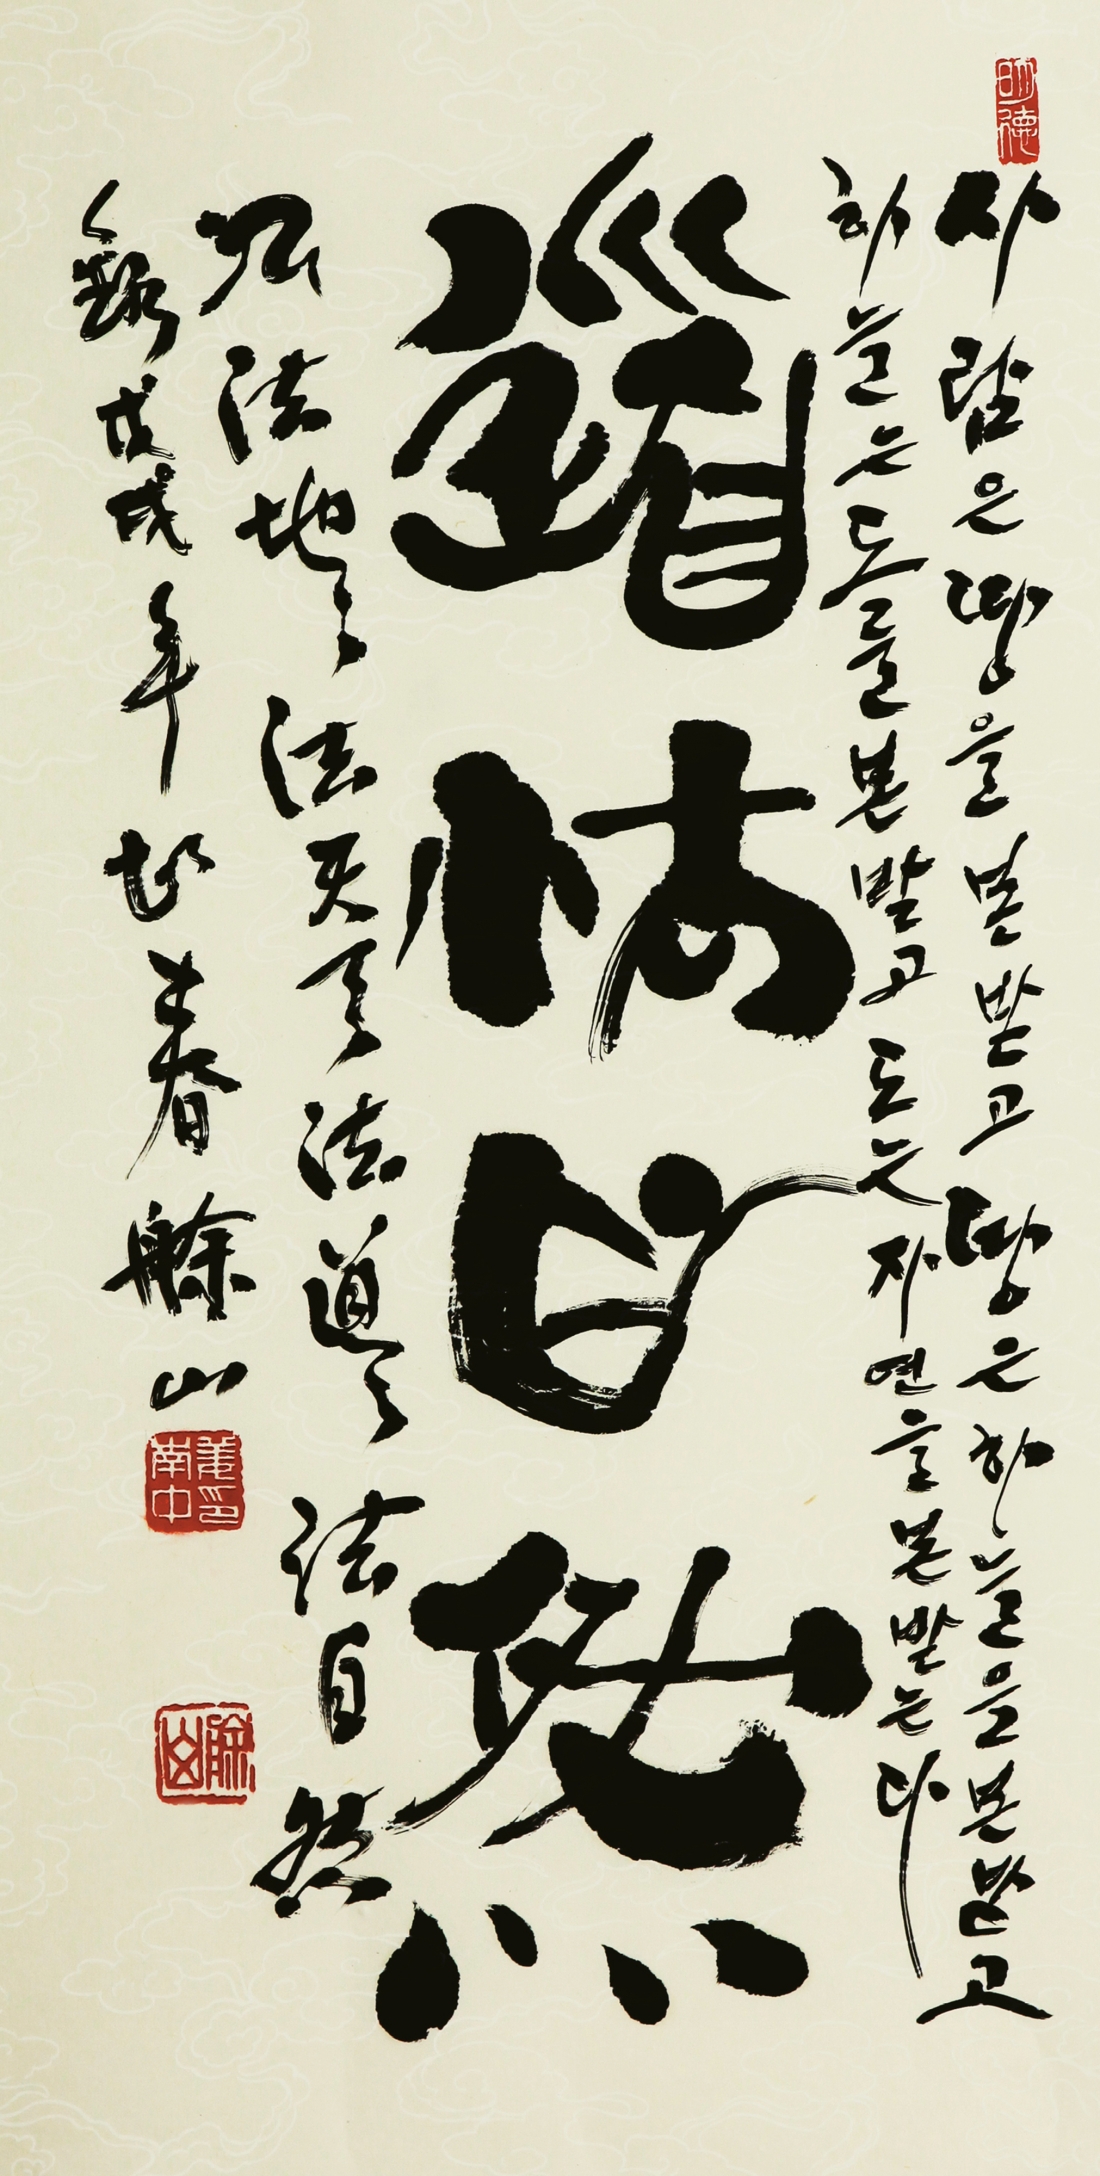 明德
사람은 땅을 본받고 땅은 하늘을 본받고
하늘은 도를 본받고 도는 자연을 본받는다
道法自然
人法地〻法天〻法道〻法自然
錄戊戌年 春艅山
姜印南中
艅山